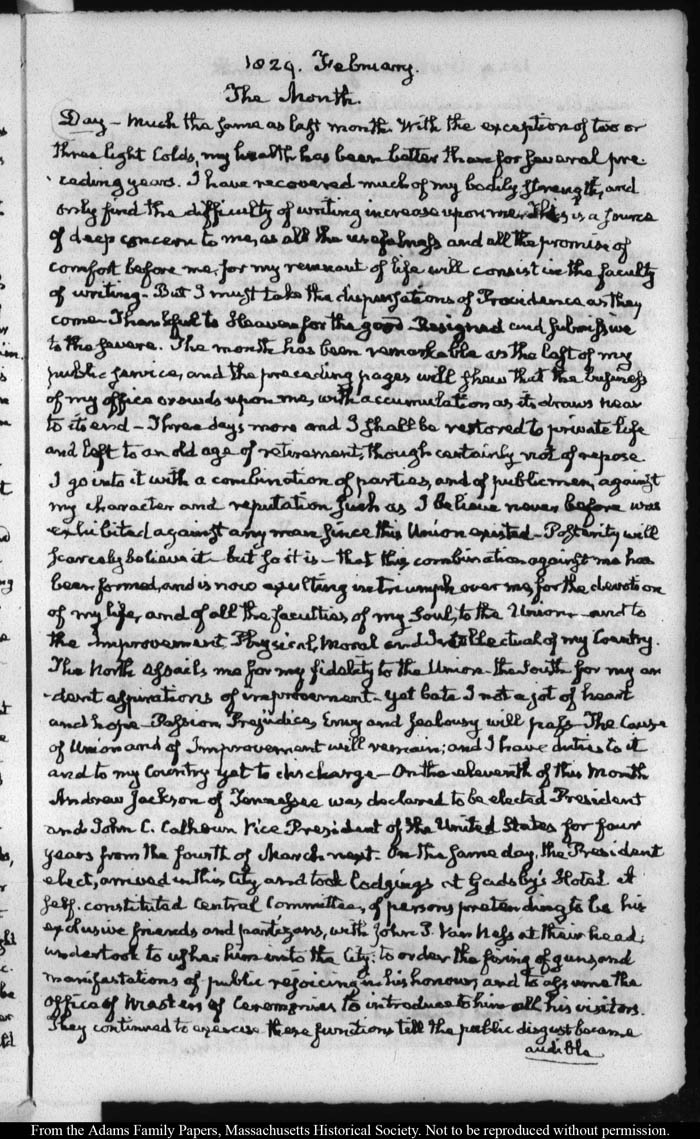 1829. February.
The Month.
Day – Much the same as last month. With the exception of two or
three light Colds, my health has been better than for several pre-
ceding years. I have recovered much of my bodily strength, and
only find the difficulty of writing increase upon me. This is a source
of deep concern to me, as all the usefulness and all the promise of
comfort before me, for my remnant of life will consist in the faculty
of writing – But I must take the dispensations of Providence as they
come – Thankful to Heaven for the good – Resigned and submissive
to the severe. The month has been remarkable as the last of my
public service, and the preceding pages will shew that the business
of my office crowds upon me, with accumulation as it draws near
to its end – Three days more and I shall be restored to private life
and left to an old age of retirement, though certainly not of repose.
I go into it with a combination of parties, and of public men, against
my character and reputation such as I believe never before was
exhibited against any man since this Union existed – Posterity will
scarcely believe it – but so it is – that this combination against me has
been formed, and is now exulting in triumph over me, for the devotion
of my life, and of all the faculties of my Soul, to the Union, – and to
the Improvement, Physical, Moral and Intellectual of my Country.
The North assails me for my fidelity to the Union – the South for my ar-
-dent aspirations of improvement – Yet bate I not a jot of heart
and hope – Passion, Prejudice, Envy and Jealousy will pass – The Cause
of Union and of Improvement will remain; and I have duties to it
and to my Country yet to discharge – On the eleventh of this Month
Andrew Jackson of Tennessee was declared to be elected President
and John C. Calhoun Vice President of the United States for four
years from the fourth of March next – On the same day, the President
elect, arrived in this City and took lodgings at Gadsby's Hotel. A
self-constituted Central Committee, of persons pretending to be his
exclusive friends and partizans, with John P. Van Ness at their head,
undertook to usher him into the City; to order the firing of guns, and
manifestations of public rejoicing in his honour, and to assume the
Office of Masters of Ceremonies to introduce to him all his visitors.
They continued to exercise these functions till the public disgust became
audible
From the Adams Family Papers, Massachusetts Historical Society. Not to be reproduced without permission.